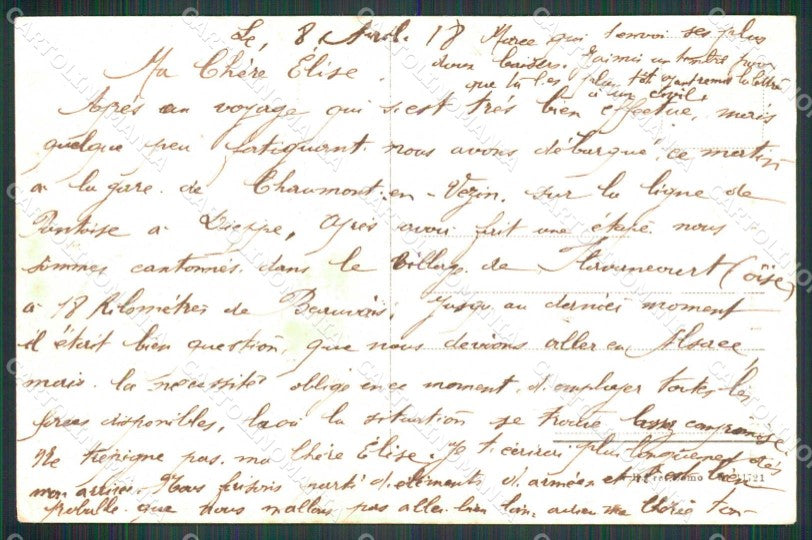 Le, 8 Avril 18
Ma Chère Élise
Après un voyage qui s'est très bien effectué, mais
quelque peu fatiguant nous avons débarqué ce matin
a la gare de Chaumont-en-Vexin, sur la ligne de
Pontoise a Dieppe, après avoir fait une étape nous
sommes cantonnés dans le village de (oise)
a 18 kilomètres de Beauvais; jusqu au dernier moment
il était bien question, que nous devions aller en Alsace,
mais la nécessité oblige en ce moment d'employer toutes les
forces disponibles, la où la situation se trouve compromise
Ne pas ma Chère Elise. Je t'écrirai plus longuement dès
mon arrivée. Nous faisons partie d'éléments d'armées et il est bien
que nous n'allons pas aller bien loin. adieu ma Chérie ton
Marcel qui t'envoi ses plus
doux baisers. J'ai mis un timbre pour
que tu l'es plus tôt
a un civil.
1721
CARTOLINOMANIA